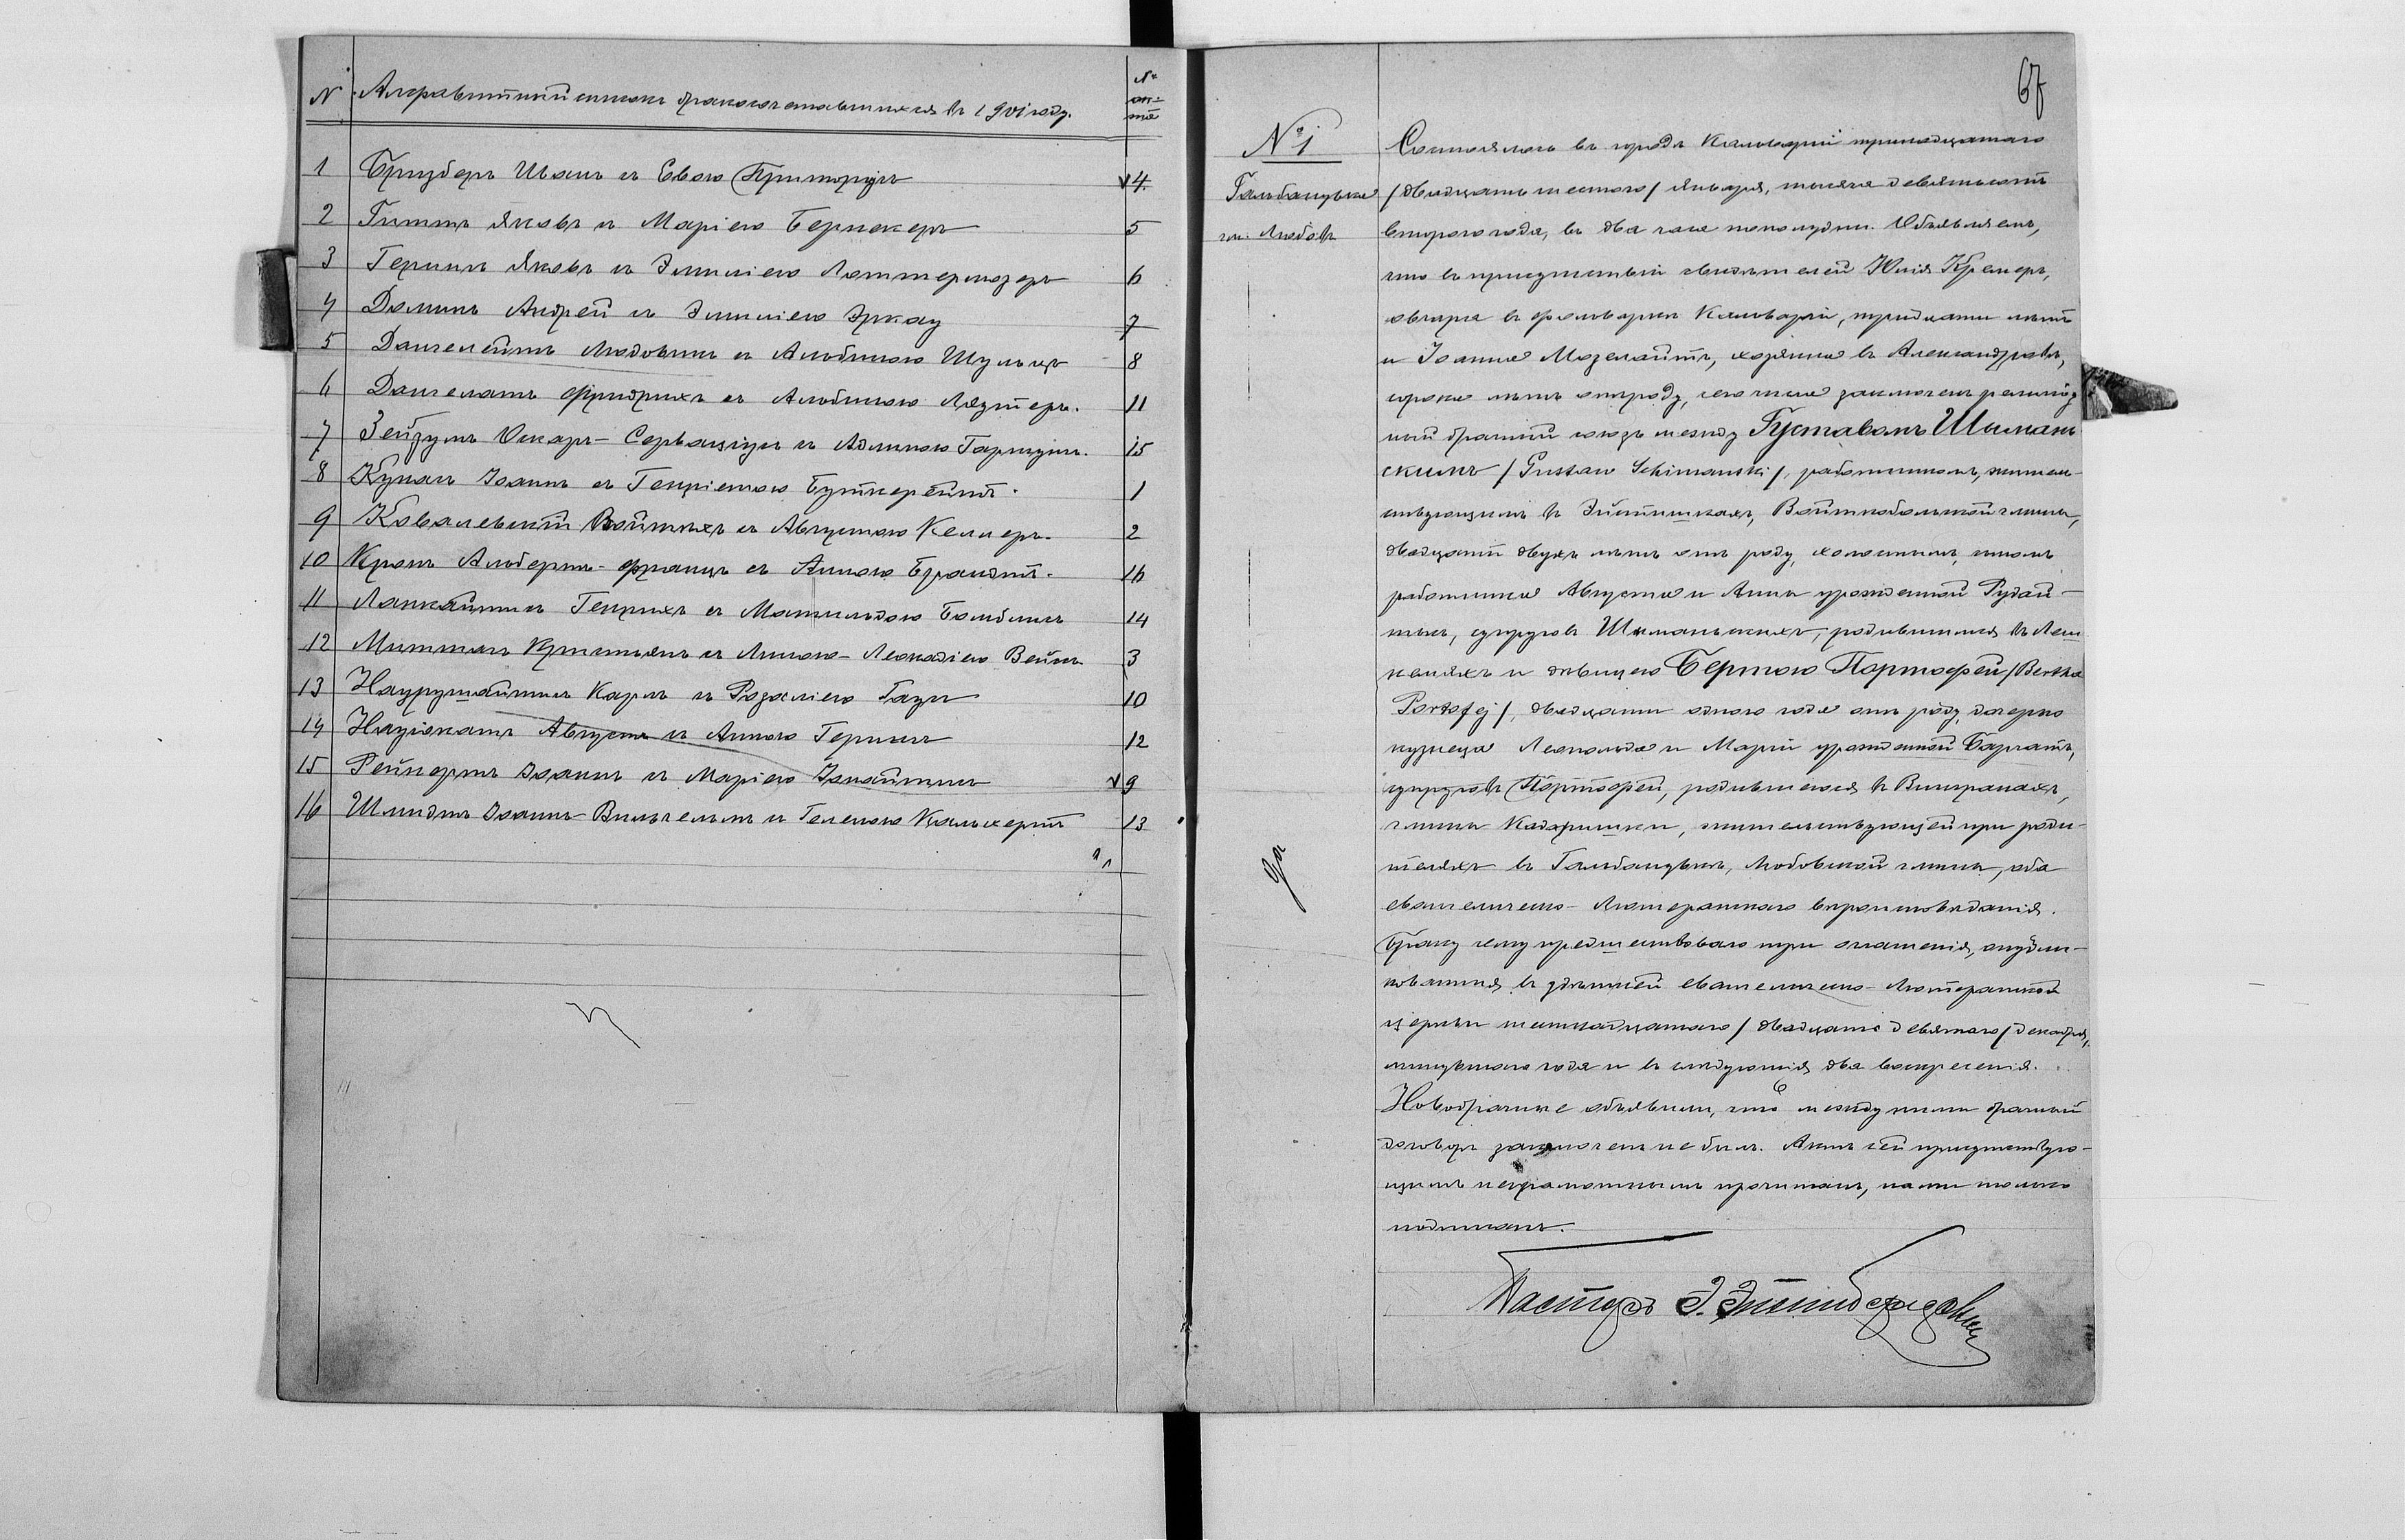 N. Алфавитный списокъ бракосочетавшихся въ 1901 году. № ак-та
1 Бризберъ Иванъ съ Евою 4
2 Гиттъ Яковъ и Маріею Бернекеръ 5
3 Германъ Яковъ съ Эмиліею 6
4 Доминъ Андрей съ Эмиліею 7
5 Дангелейтъ Людовикъ съ Альбиною Шульцъ 8
6 Дангелатъ Фридрихъ съ Альбиною 11
7 Оскаръ-Серваціусъ съ 15
8 Куканъ Іоаннъ съ Генріетою 1
9 Ковалевскій съ Августою Келлеръ. 2
10 Кронъ Альбертъ-Францъ съ Анною Брандтъ. 16
11 Лаппайтисъ Генрихъ съ Матильдою Бамблисъ 14
12 Миттасъ Кристьянъ съ Анною-Леокадіею Вейсъ 3
13 Наурушайтисъ Карлъ съ Розаліею Гаусъ 10
14 Августъ съ Анною Германъ 12
15 Рейнертъ Іоаннъ съ Маріею 9
16 Шмидтъ Іоаннъ-Вильгельмъ съ Геленою 13
67
№ 1
Гальбанувка
гм. Любовъ
Состоялось въ городѣ Кальваріи тринадцатаго
/двадцать шестого/ января, тысяча девятьсотъ
второго года, въ два часа пополудни. Объявляемъ,
что въ присутствіи свидѣтелей Юлія Кремеръ,
овчаря въ фольваркѣ Кальваріи, тридцати лѣтъ
и Іоанна Мозелайтъ, хозяина въ Александровѣ,
сорока лѣтъ отъ роду, сего числа заключенъ религіоз-
ный брачный союзъ между Густавомъ Шиман-
скимъ /Gustaw Schimanski/, работникомъ, житель-
ствующимъ въ Войткобольской гмины,
двадцати двухъ лѣтъ отъ роду, холостымъ, сыномъ
работника Августа и Анны урожденной Рудай-
тисъ, супруговъ Шиманскихъ, родившимся въ
и дѣвицею Бертою Портофей /Bertha
Portofej/, двадцати одного года отъ роду, дочерью
кузнеца Леопольда и Маріи урожденной Баргатъ,
супруговъ Портофей, родившеюся въ
гмины Кадаришки, жительствующей при роди-
теляхъ въ Гальбанувкѣ, Любовской гмины, оба
евангелическо-Лютеранскаго вѣроисповѣданія.
Браку сему предшествовало три оглашенія, опубли-
кованныя въ здѣшней евангелическо-Лютеранской
церкви шестнадцатаго /двадцать девятаго/ декабря,
минувшаго года и въ слѣдующія два воскресенія.
Новобрачные объявили, что между ними брачный
договоръ заключенъ не былъ. Актъ сей присутствую-
щимъ неграмотнымъ прочитанъ, нами только
подписанъ.
Пасторъ Э.